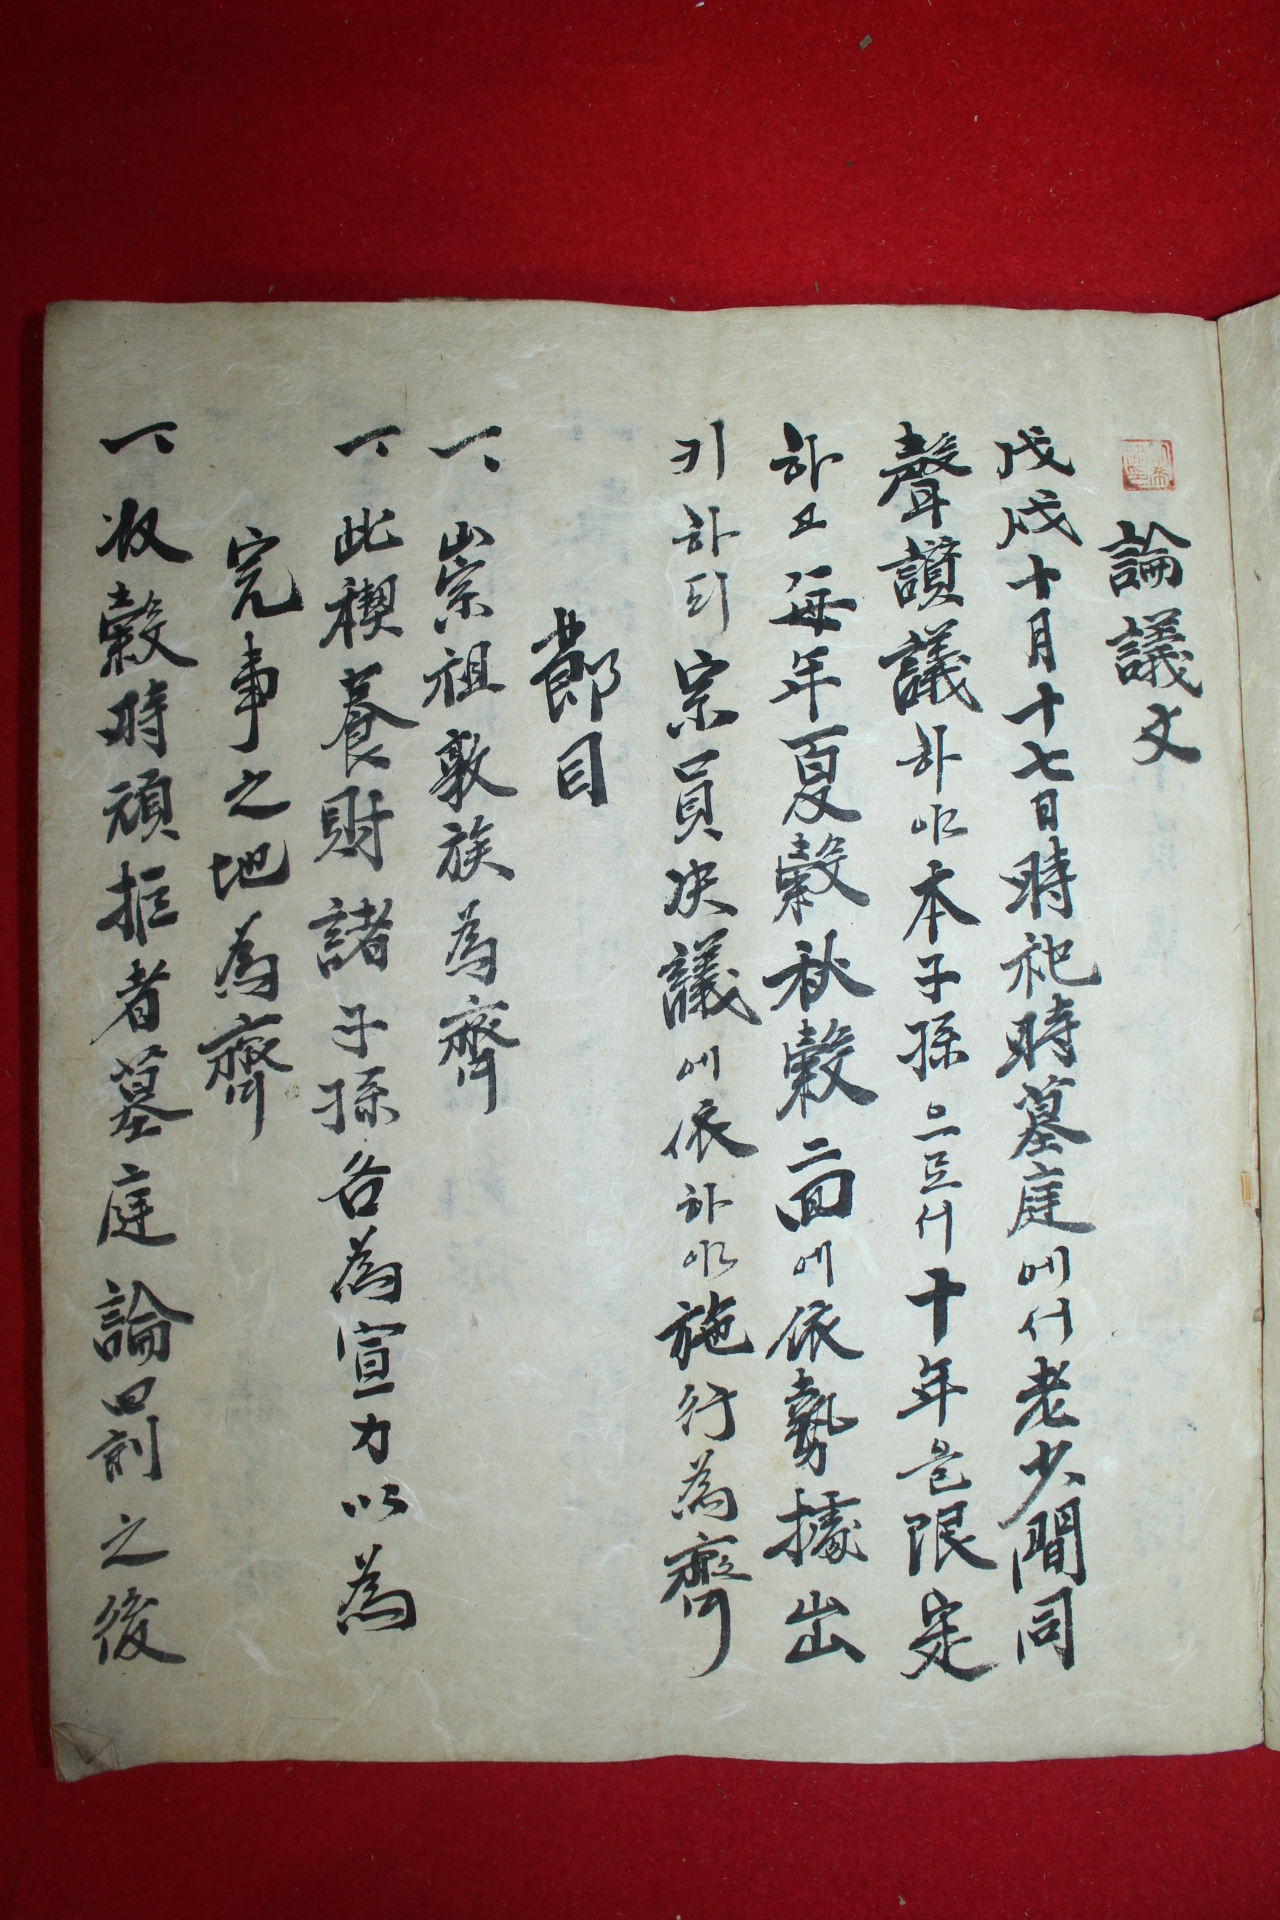 論議文
戊戌十月十七日時祀時墓庭에서老少間同
聲讃議하야本子孫으로서十年을限定
하고每年夏穀秋穀二回에依勢據出
키하되宗員決議에依하야施行爲齊
節目
一、崇祖敦族爲齊
一、此稧養財諸子孫各爲宣力以爲
完事之地爲齊
一、收穀時頑拒者墓庭論回罰之後